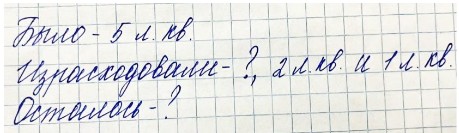 Было - 5 л. кв.
Израсходовали - ?, 2 л. кв. и 1 л. кв.
Осталось - ?